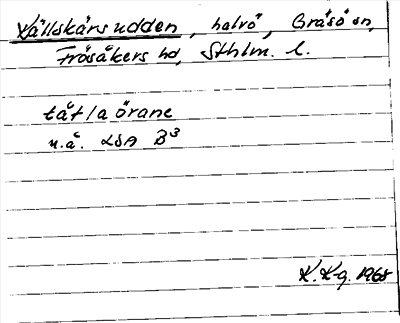 Källskärsudden, halvö, Gräsö sn,
Frösåkers hd, Sthlm. l.
tåt/a örane
u.å. LSA B3
K. Kg. 1965